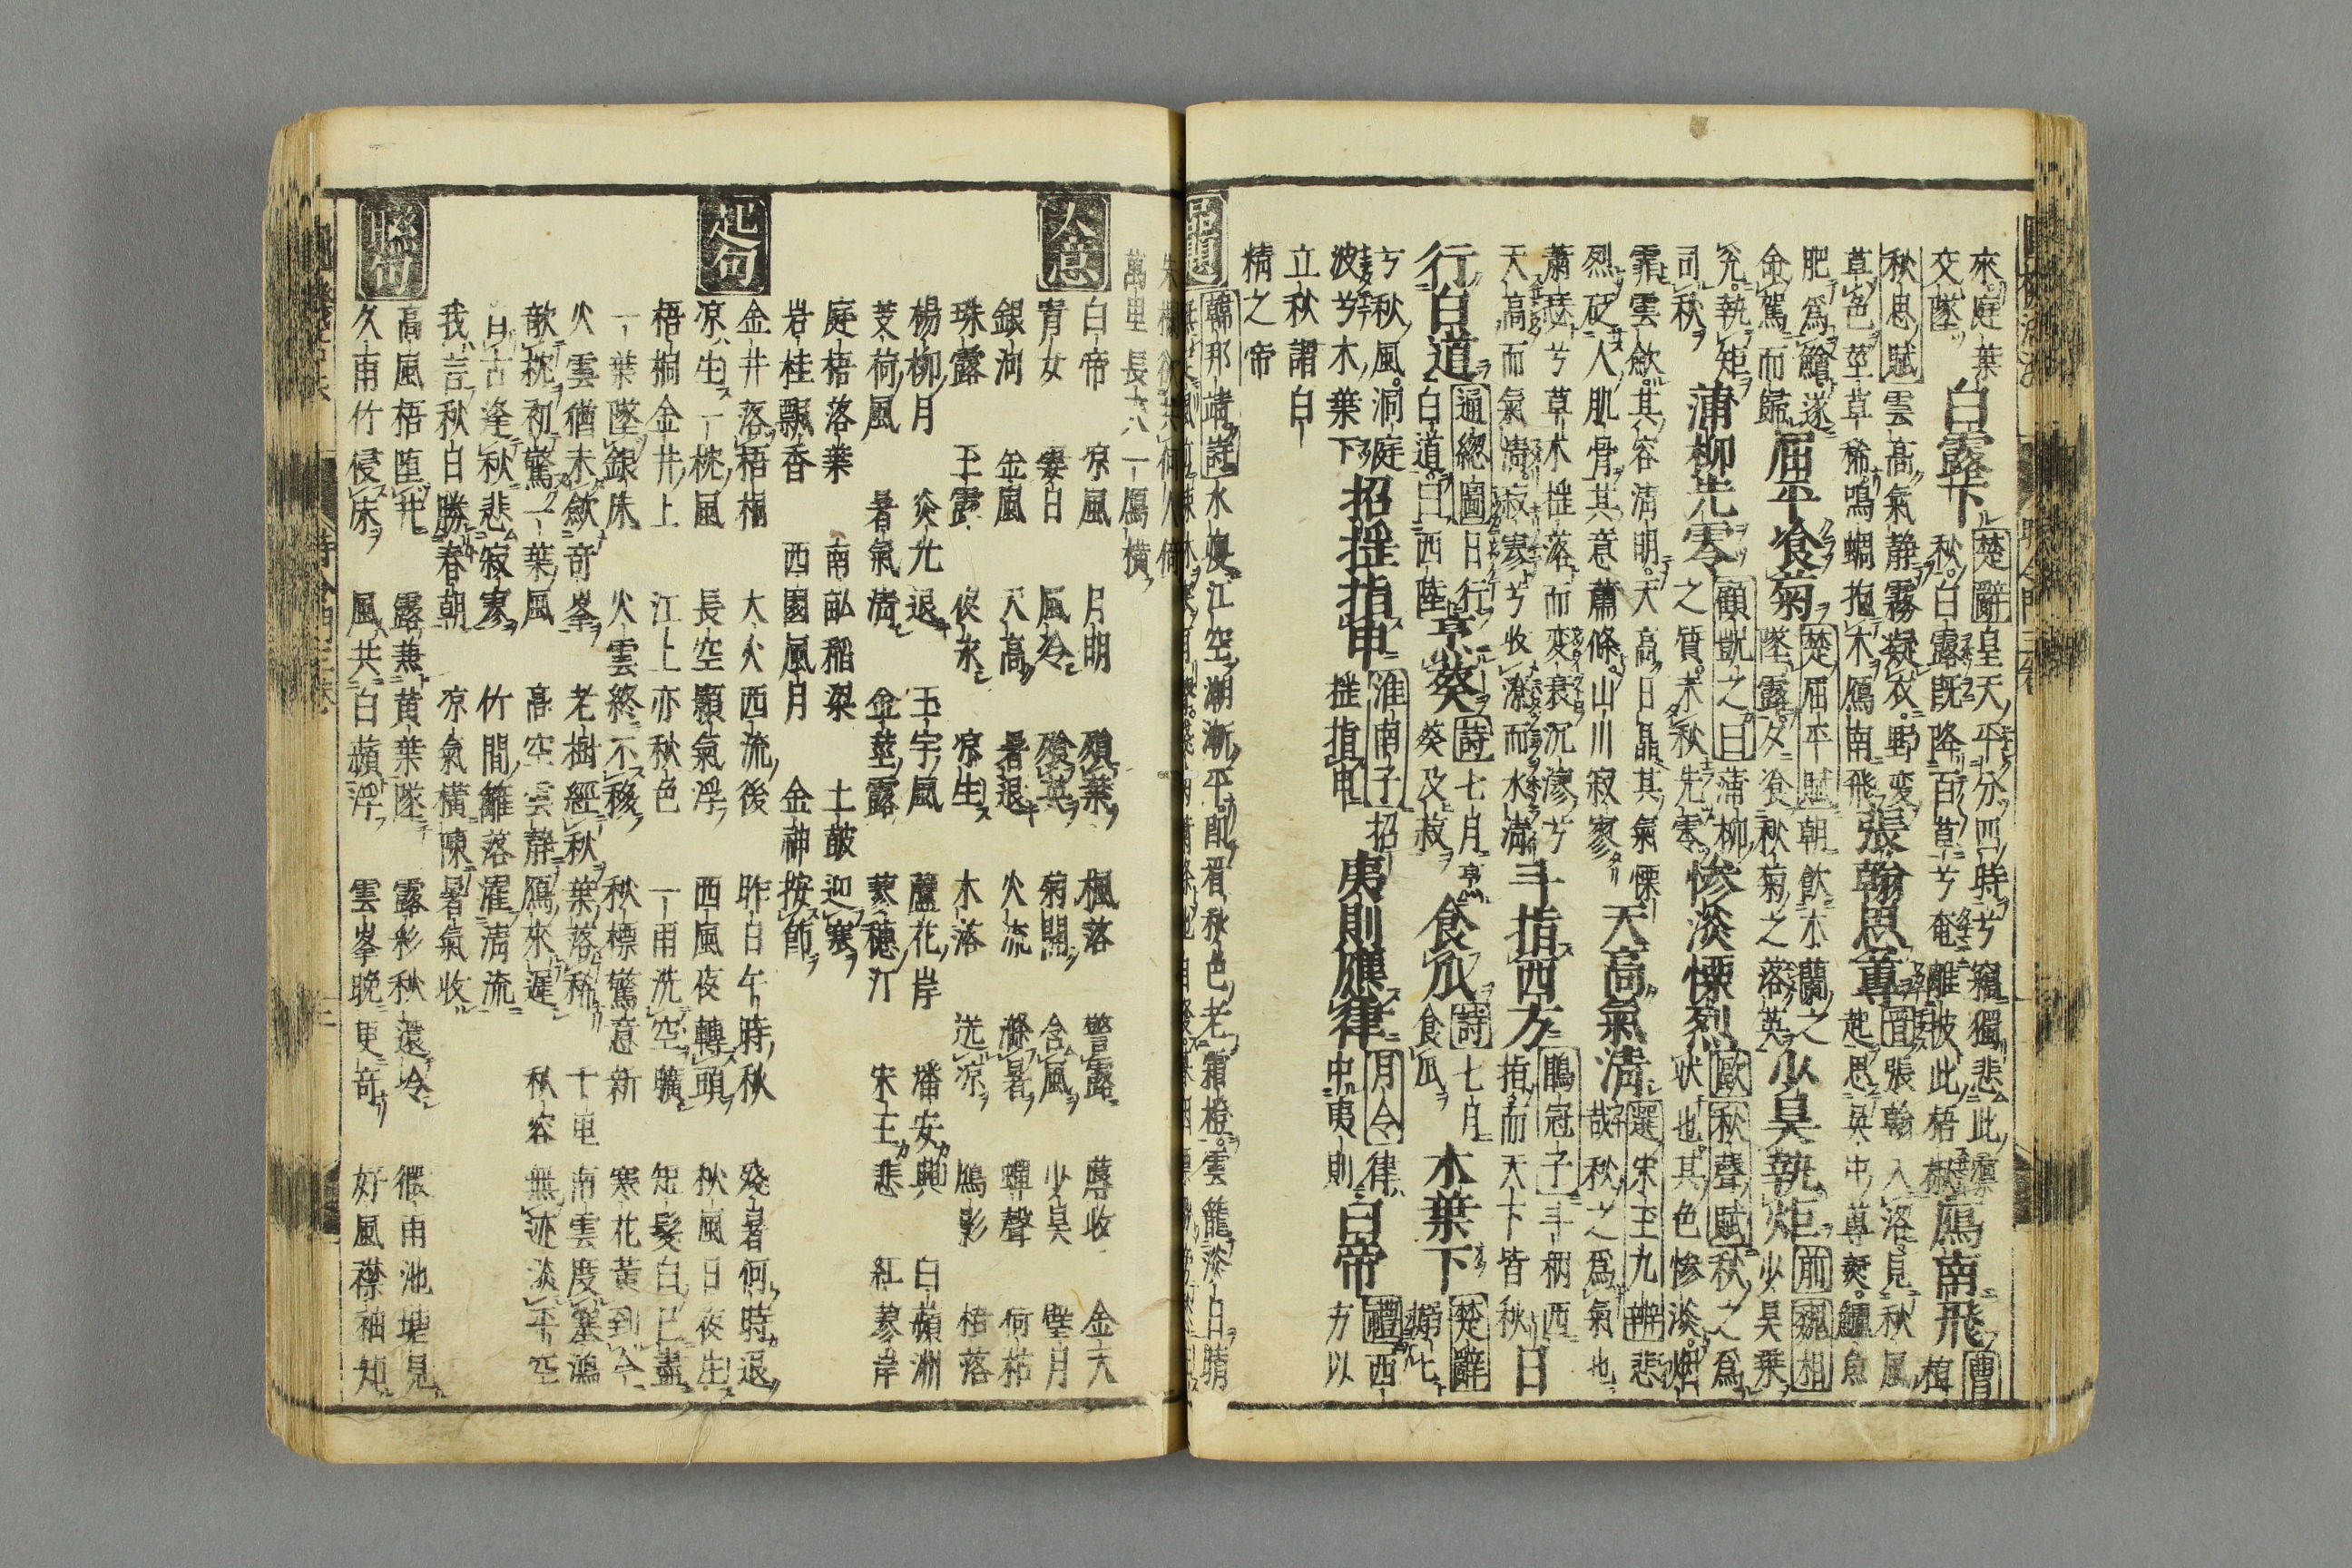 來庭葉
交墜
白露下
楚辭皇天平分四時兮竊獨悲此凜
秋白露既降百草兮奄離披此梧楸
鴈南飛
曹植
秋思賦雲高氣静露凝衣野変
草色莖草稀鳴蜩抱木鴈南飛
張翰思蓴
晋張翰入洛見秋風
起思呉中蓴羮鱸魚
肥爲鱠遂
金駕而歸
屈平飡菊
楚屈平賦朝飲木蘭之
墜露夕飡秋菊之落英
少昊執矩
前魏相
少昊乗
兊執矩
司秋
蒲柳先零
顧凱之曰蒲柳
之質未秋先零
惨淡慄烈
歐秋聲賦秋之爲
状也其色惨淡烟
霏雲歛其容清明天高日晶其氣慄
烈砭人肌骨其意蕭條山川寂寥
天高氣清
選宋玉九辨悲
哉秋之爲氣也
蕭瑟兮草木揺落而変衰沉漻兮
天高而氣清寂寥兮收潦而水清
斗指西方
鶡冠子斗柄西
指而天下皆秋
日
行白道
通緫圖日行
白道曰西陸
烹葵
詩七月烹
葵及菽
食瓜
詩七月
食瓜
木葉下
楚辭
嫋七
兮秋風洞庭
波兮木葉下
招揺指申
淮南子招
揺指申
夷則應律
月令律
中夷則
白帝
禮西
方以
立秋謂白
精之帝
品題
韓邪靖詩水痩江空潮漸平配看秋色老霜橙雲籠淡白晴
萬里長十八一鴈横
大意
白帝 凉風 月明 殞葉 楓落 警露 蓐收 金天
青女 婁日 風冷 飡英 菊開 含風 少昊 壁月
銀河 金風 天高 暑退 火流 滌暑 蟬聲 荷枯
珠露 玉露 夜永 凉生 木落 送凉 鴈影 梧落
楊柳月 炎光退 玉宇風 蘆花岸 潘安興 白蘋洲
芰荷風 暑氣清 金莖露 蓼穗汀 宋玉悲 紅蓼岸
庭梧落葉 南畆稲粱 土皷迎寒
岩桂飄香 西園風月 金神按節
起句
金井落梧桐 大火西流後 昨日午時秋 殘暑何時退
凉生一枕風 長空顥氣浮 西風夜轉頭 秋風日夜生
梧桐金井上 江上亦秋色 一雨洗空曠 短髮白已盡
一葉墜銀床 火雲終不移 秋標驚意新 寒花黄到今
火雲猶未歛奇峯 老樹經秋葉落稀 十里南雲度塞鴻
敧枕初驚一葉風 高空雲静鴈來遅 秋容無迹淡平空
自古逢秋悲寂寥 竹間籬落濯清流
我言秋日勝春朝 凉氣横陳暑氣收
聫句
高風梧堕井 露兼黄葉墜 露彩秋還冷 微雨池塘見
久雨竹侵床 風共白蘋浮 雲峯晩更奇 好風襟袖知